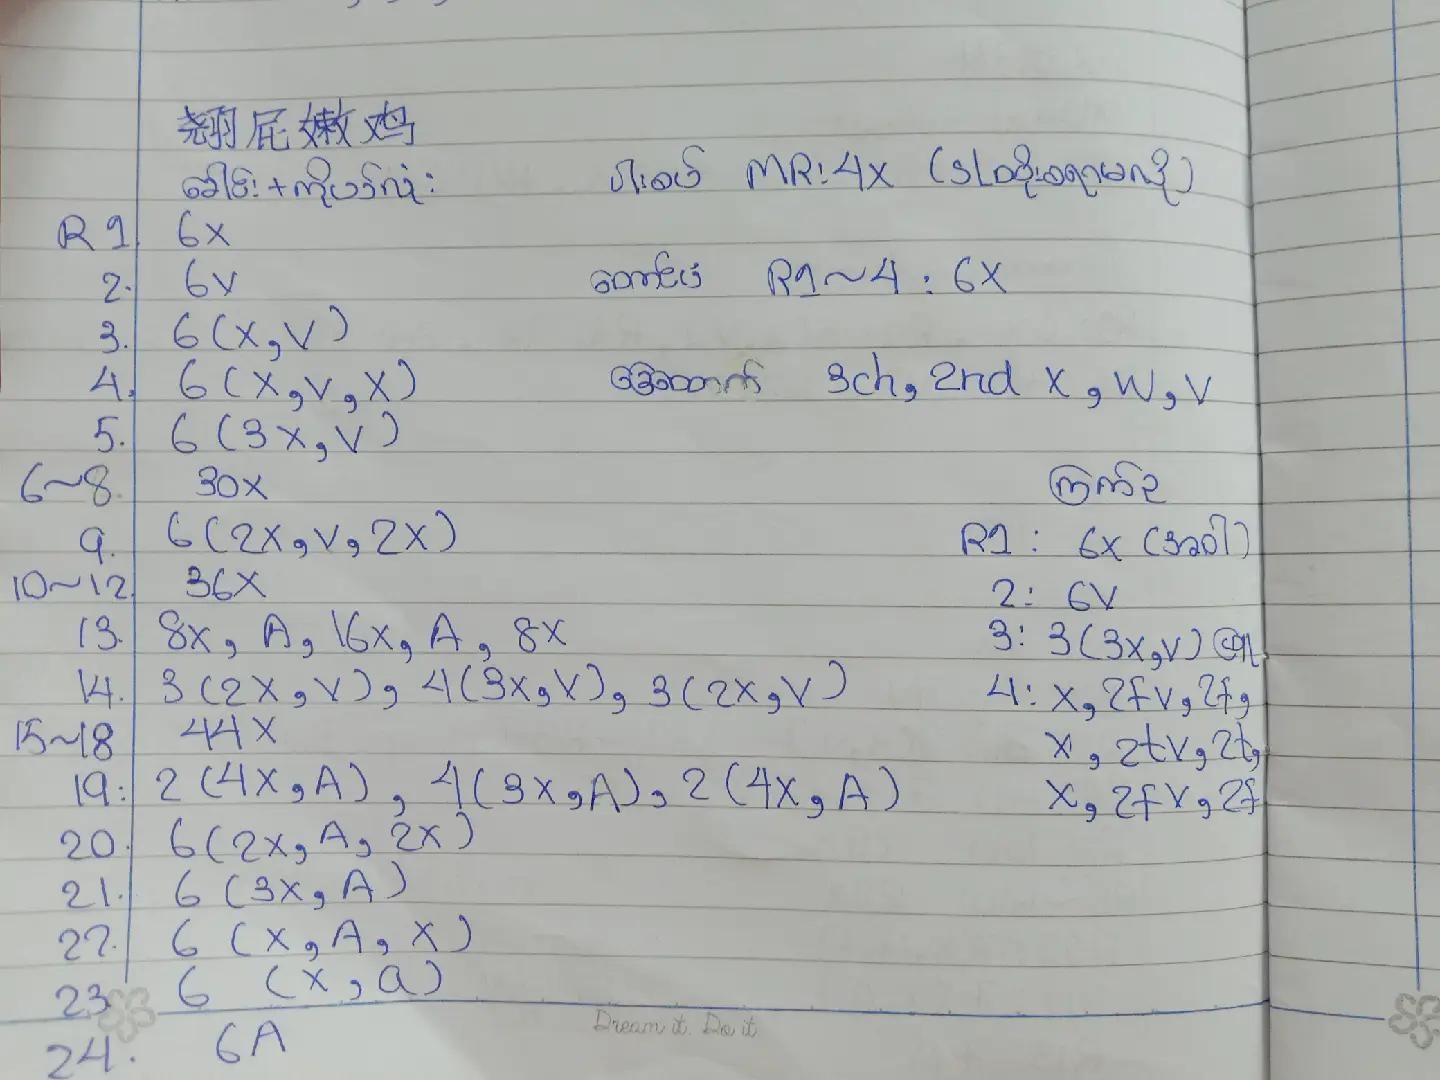 翘屁嫩鸡
ခေါင်း+ကိုယ်လုံး :
ပါးစပ် MR:4x
R1 6x
2. 6v
တောင်ပံ R1~4 : 6x
3. 6(x,v)
4. 6(x,v,x)
3ch, 2nd x, w, v
5. 6(3x,v)
6~8. 30x
ကြက်ဥ
9. 6(2x,v,2x)
R1: 6x (အဝါ)
10~12 36x
2: 6v
13. 8x, A, 16x, A, 8x
3: 3(3x,v)
14. 3(2x,v), 4(3x,v), 3(2x,v)
4: x, 2fv, 2f,
15~18 44x
x, 2tv, 2t,
19: 2(4x,A), 4(3x,A), 2(4x,A)
x, 2fv, 2f
20. 6(2x,A,2x)
21. 6(3x,A)
22. 6(x,A,x)
23. 6(x,a)
Dream it. Do it
24. 6A